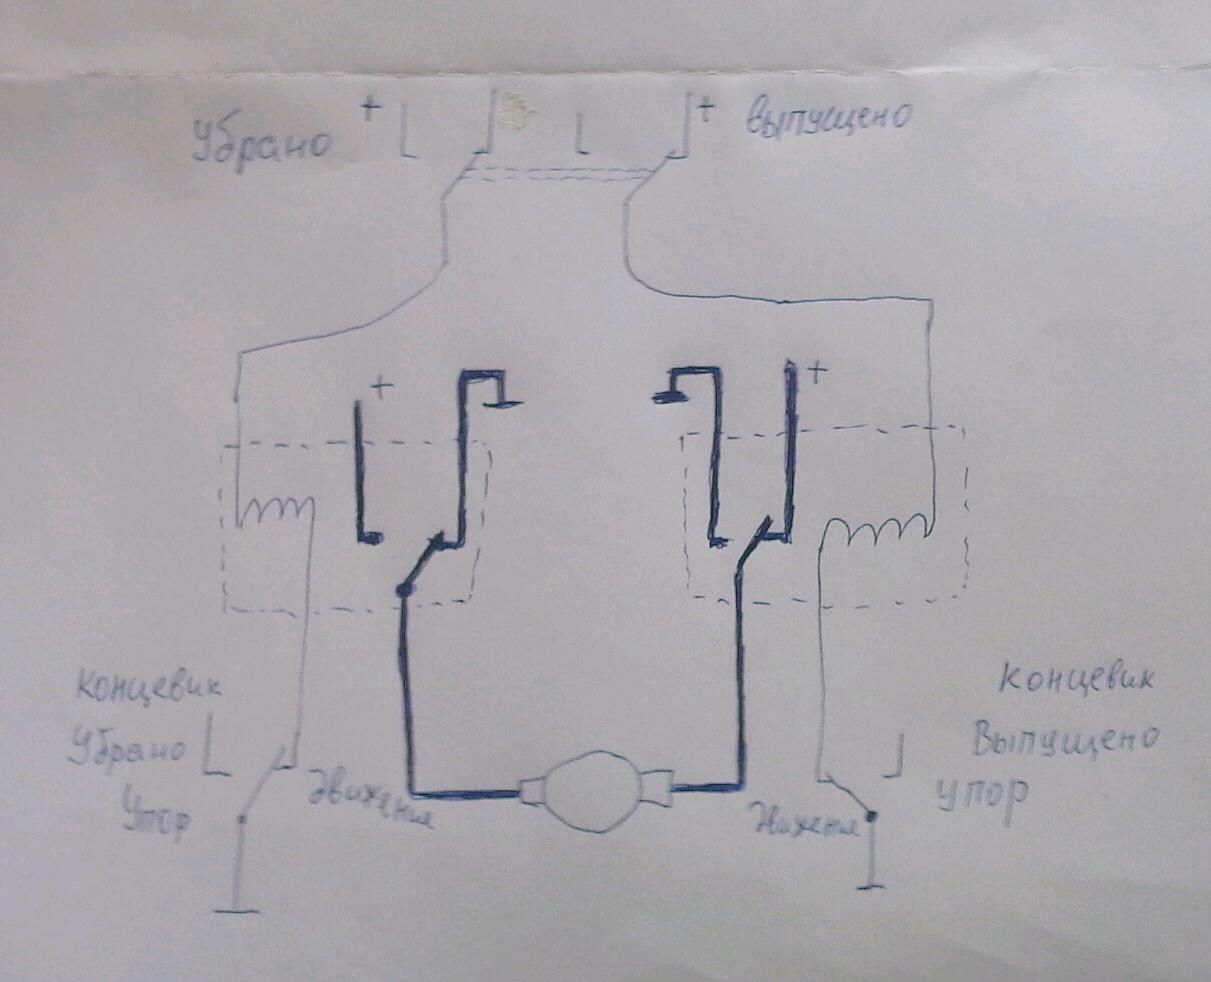 Убрано + + Выпущено
+ +
Концевик
Убрано
Упор
Движение
Концевик
Выпущено
упор
Движение